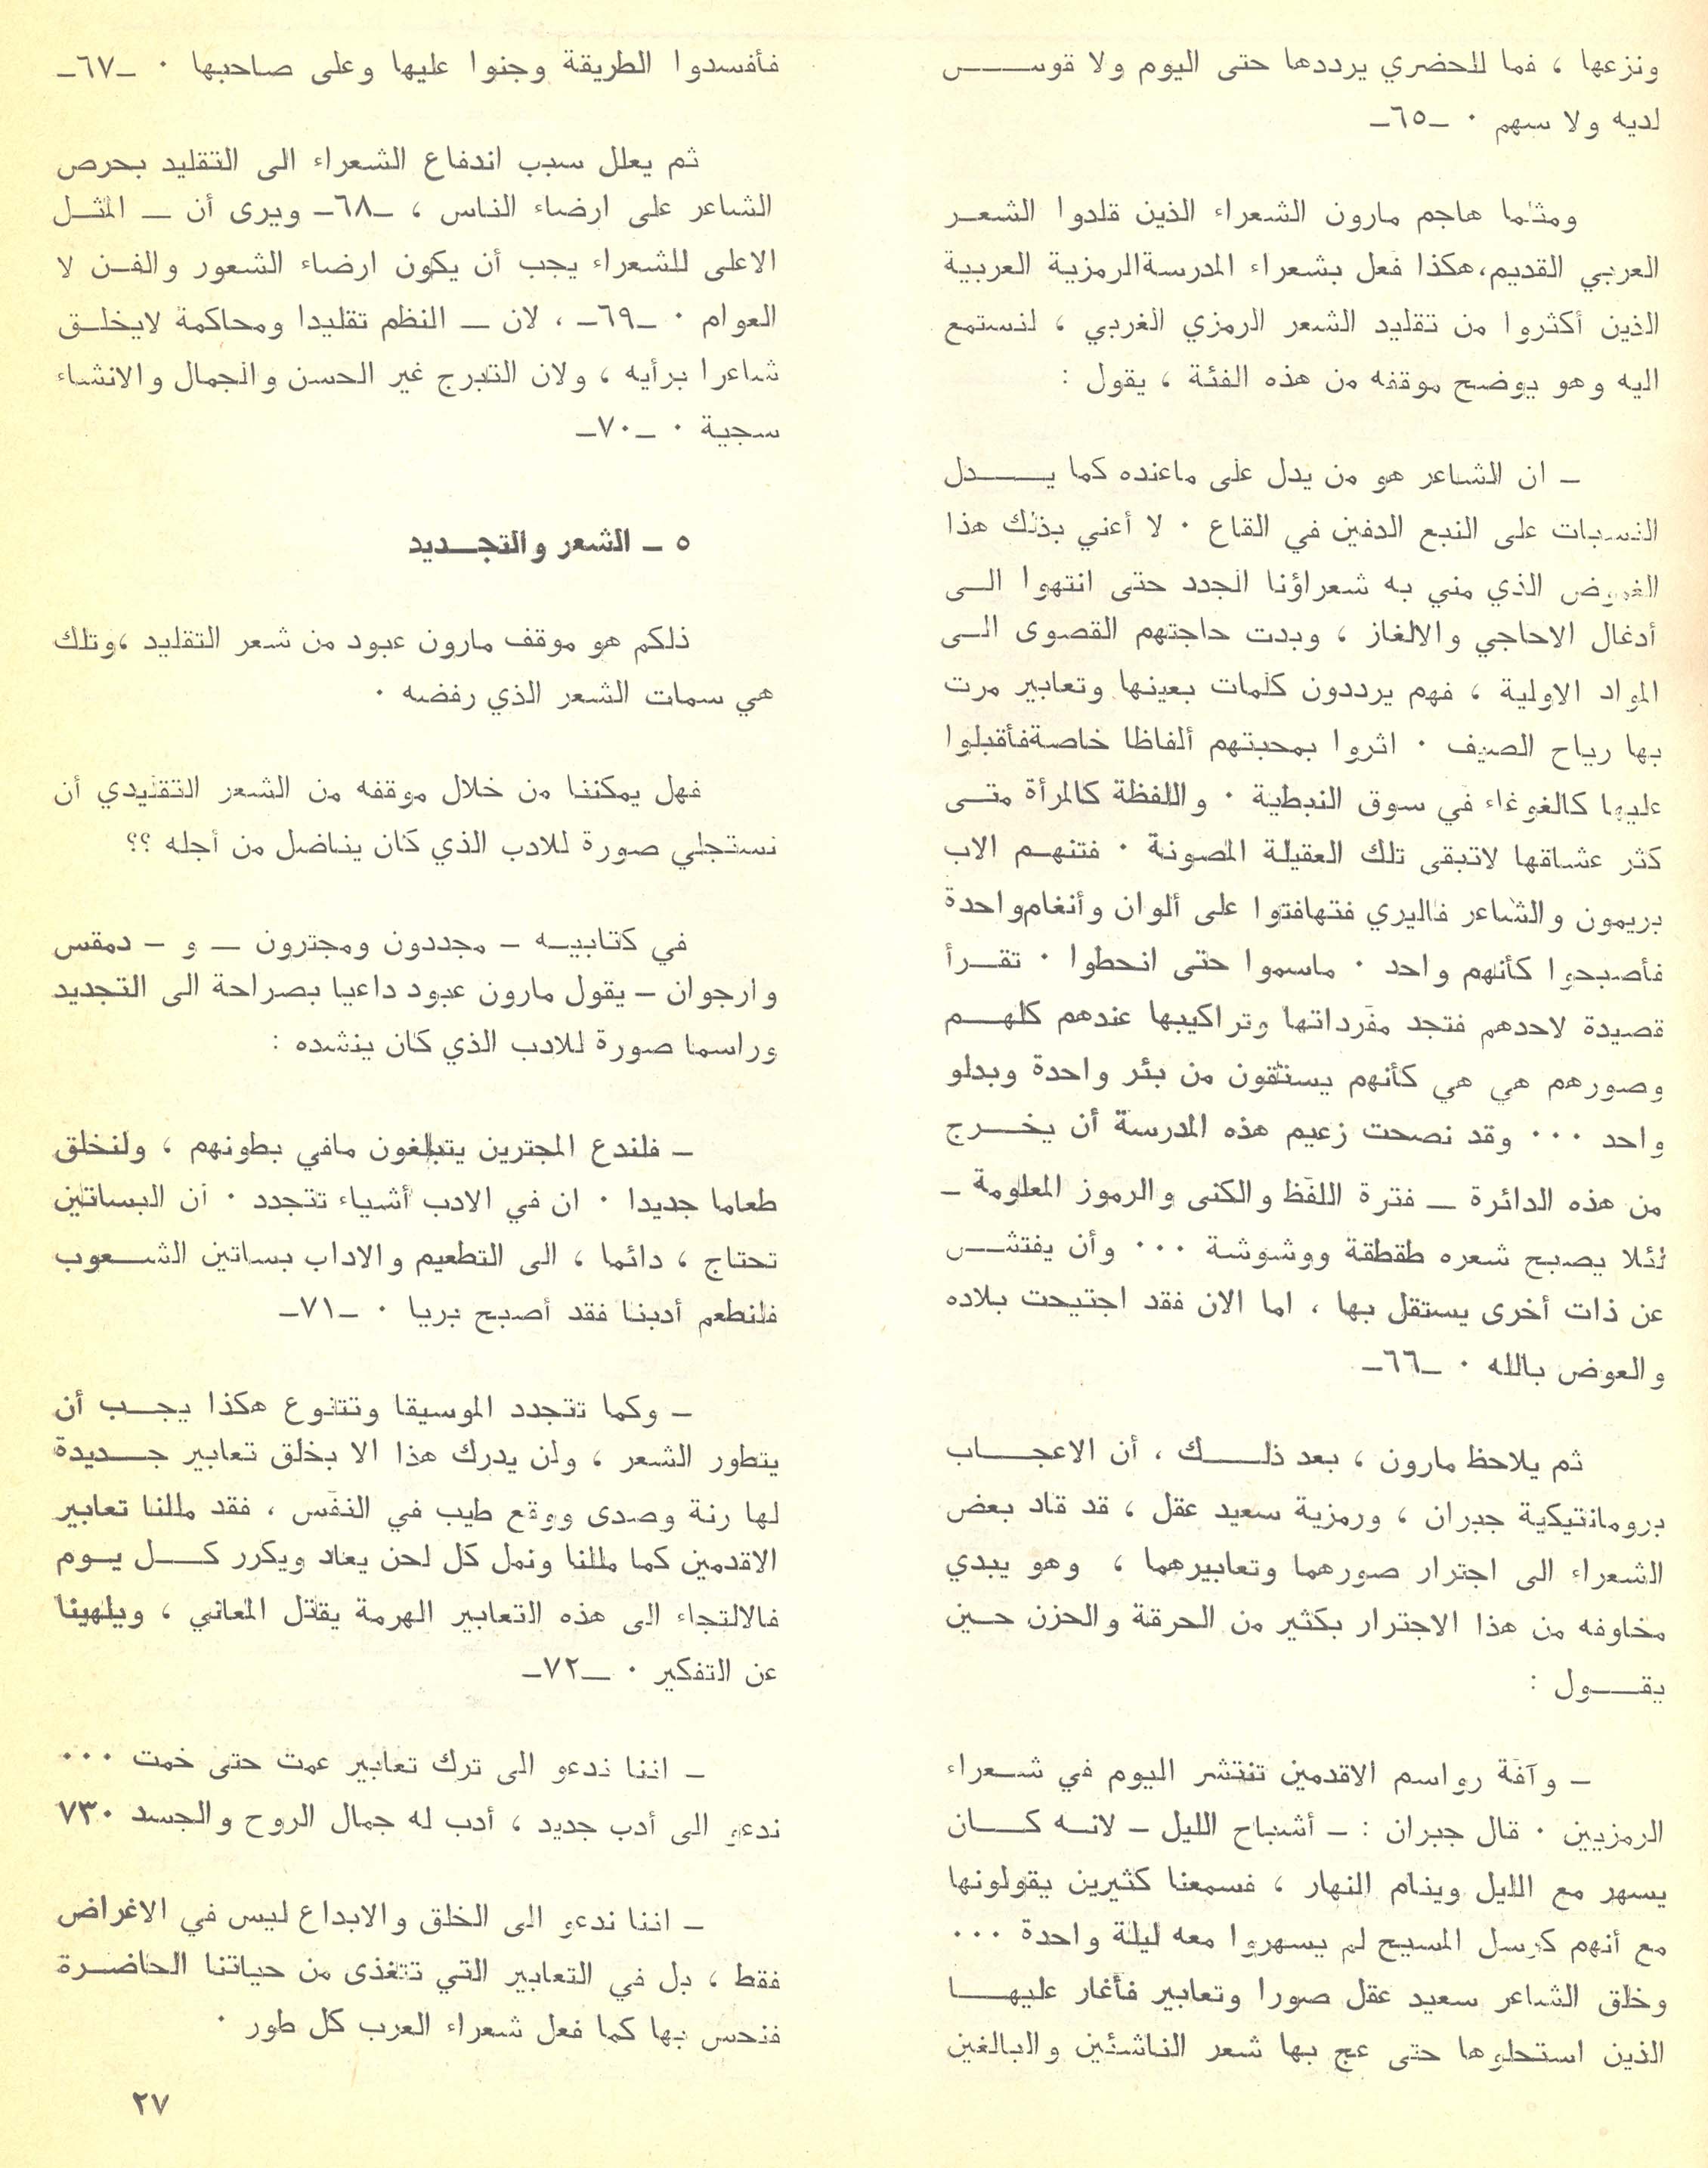 ونزعها ، فما للحضري يرددها حتى اليوم ولا قوس
لديه ولا سهم ٠ _٦٥_
ومثلما هاجم مارون الشعراء الذين قلدوا الشعر
العربي القديم،هكذا فعل بشعراء المدرسةالرمزية العربية
الذين أكثروا من تقليد الشعر الرمزي الغربي ، لنستمع
اليه وهو يوضح موقفه من هذه الفئة ، يقول :
_ ان الشاعر هو من يدل على ماعنده كما يدل
النسبات على النبع الدفين في القاع ٠ لا أعني بذلك هذا
الغموض الذي مني به شعراؤنا الجدد حتى انتهوا الى
أدغال الاحاجي والالغاز ، وبدت حاجتهم القصوى الى
المواد الاولية ، فهم يرددون كلمات بعينها وتعابير مرت
بها رياح الصيف ٠ اثروا بمحبتهم ألفاظا خاصةفأقبلوا
عليها كالغوغاء في سوق النبطية ٠ واللفظة كالمرأة متى
كثر عشاقها لاتبقى تلك العقيلة المصونة ٠ فتنهم الاب
بريمون والشاعر فاليري فتهافتوا على ألوان وأنغامواحدة
فأصبحوا كأنهم واحد ٠ ماسموا حتى انحطوا ٠ تقرأ
قصيدة لاحدهم فتجد مفرداتها وتراكيبها عندهم كلهم
وصورهم هي هي كأنهم يستقون من بئر واحدة وبدلو
واحد ٠٠٠ وقد نصحت زعيم هذه المدرسة أن يخرج
من هذه الدائرة _ فترة اللفظ والكنى والرموز المعلومة _
لئلا يصبح شعره طقطقة ووشوشة ٠٠٠ وأن يفتش
عن ذات أخرى يستقل بها ، اما الان فقد اجتيحت بلاده
والعوض بالله ٠ _٦٦_
ثم يلاحظ مارون ، بعد ذلك ، أن الاعجاب
برومانتيكية جبران ، ورمزية سعيد عقل ، قد قاد بعض
الشعراء الى اجترار صورهما وتعابيرهما ، وهو يبدي
مخاوفه من هذا الاجترار بكثير من الحرقة والحزن حين
يقول :
_ وآفة رواسم الاقدمين تنتشر اليوم في شعراء
الرمزيين ٠ قال جبران : _ أشباح الليل _ لانه كان
يسهر مع الليل وينام النهار ، فسمعنا كثيرين يقولونها
مع أنهم كرسل المسيح لم يسهروا معه ليلة واحدة ٠٠٠
وخلق الشاعر سعيد عقل صورا وتعابير فأغار عليها
الذين استحلوها حتى عج بها شعر الناشئين والبالغين
فأفسدوا الطريقة وجنوا عليها وعلى صاحبها ٠ _٦٧_
ثم يعلل سبب اندفاع الشعراء الى التقليد بحرص
الشاعر على ارضاء الناس ، _٦٨_ ويرى أن _ المثل
الاعلى للشعراء يجب أن يكون ارضاء الشعور والفن لا
العوام ٠ _٦٩_ ، لان _ النظم تقليدا ومحاكمة لايخلق
شاعرا برأيه ، ولان التبرج غير الحسن والجمال والانشاء
سجية ٠ _٧٠_
٥ _ الشعر والتجديد
ذلكم هو موقف مارون عبود من شعر التقليد ،وتلك
هي سمات الشعر الذي رفضه ٠
فهل يمكننا من خلال موقفه من الشعر التقليدي أن
نستجلي صورة للادب الذي كان يناضل من أجله ؟؟
في كتابيه _ مجددون ومجترون _ و _ دمقس
وارجوان _ يقول مارون عبود داعيا بصراحة الى التجديد
وراسما صورة للادب الذي كان ينشده :
_ فلندع المجترين يتبلغون مافي بطونهم ، ولنخلق
طعاما جديدا ٠ ان في الادب أشياء تتجدد ٠ ان البساتين
تحتاج ، دائما ، الى التطعيم والاداب بساتين الشعوب
فلنطعم أدبنا فقد أصبح بريا ٠ _٧١_
_ وكما تتجدد الموسيقا وتتنوع هكذا يجب أن
يتطور الشعر ، ولن يدرك هذا الا بخلق تعابير جديدة
لها رنة وصدى ووقع طيب في النفس ، فقد مللنا تعابير
الاقدمين كما مللنا ونمل كل لحن يعاد ويكرر كل يوم
فالالتجاء الى هذه التعابير الهرمة يقتل المعاني ، ويلهينا
عن التفكير ٠ _٧٢_
_ اننا ندعو الى ترك تعابير عمت حتى خمت ٠٠٠
ندعو الى أدب جديد ، أدب له جمال الروح والجسد ٧٣٠
_ اننا ندعو الى الخلق والابداع ليس في الاغراض
فقط ، بل في التعابير التي تتغذى من حياتنا الحاضرة
فنحس بها كما فعل شعراء العرب كل طور ٠
٢٧